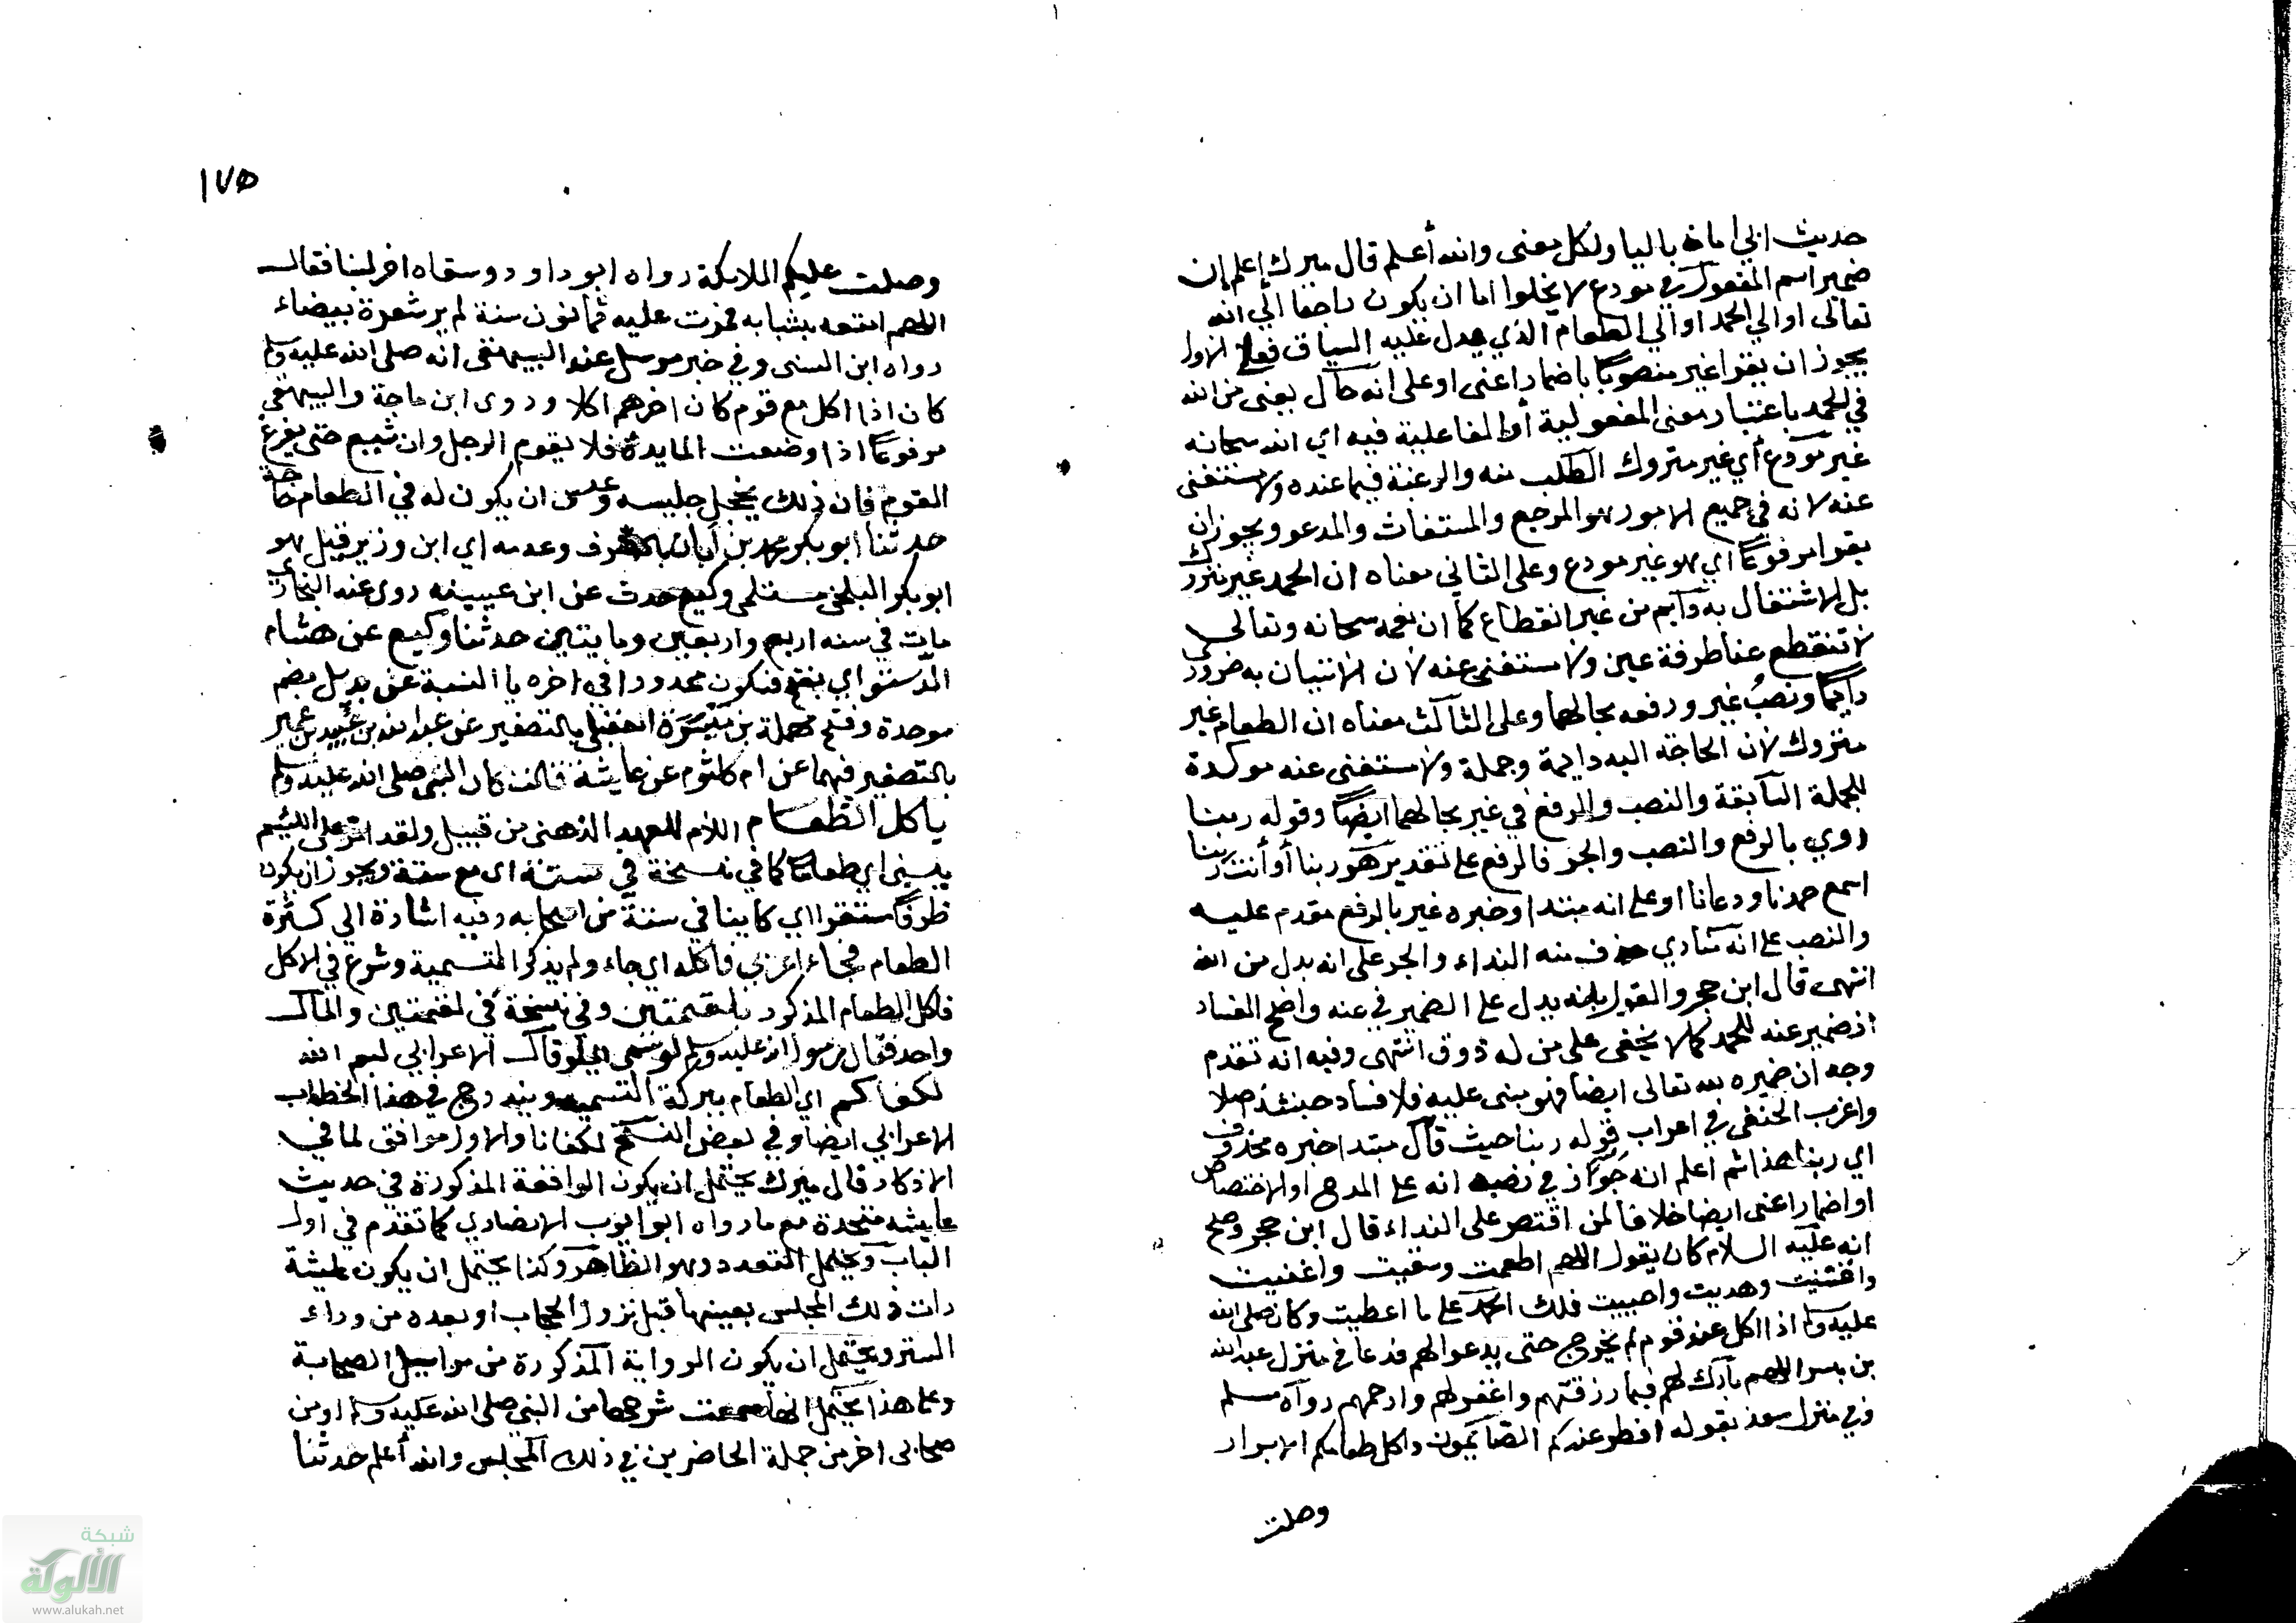 حديث ابي امامة باليا ولكل معنى والله أعلم قال ميرك إعلم إن
ضمير اسم المفعول في مودع لا يخلوا اما ان يكون راجعا الي الله
تعالى او الي الحمد او الي الطعام الذي يدل عليه السياق فعلى الاول
يجوز ان يقرا غير منصوبًا باضمار اعنى او على انه حال يعنى من الله
في الحمد باعتبار معنى المفعولية أو الفاعلية فيه اي الله سبحانه
غير مودع أي غير متروك الطلب منه والرغبة فيما عنده ولا مستغنى
عنه لانه في جميع الامور هو المرجع والمستغاث والمدعو ويجوز ان
يقرا مرفوعًا اي هو غير مودع وعلى الثاني معناه ان الحمد غير متروك
بل الاشتغال به دآيم من غير انقطاع كما ان نعمه سبحانه وتعالى
لا تنقطع عنا طرفة عين ولا مستغنى عنه لان الاتيان به ضروري
دايمًا ونصبُ غير ورفعه بحالهما وعلى الثالث معناه ان الطعام غير
متروك لان الحاجة اليه دايمة وجملة ولا مستغنى عنه موكدة
للجملة السابقة والنصب والرفع في غير بحالهما ايضًا وقوله ربنا
روي بالرفع والنصب والجر فالرفع على تقدير هو ربنا أو أنت ربنا
اسمع حمدنا ودعانا او على انه مبتدا وخبره غير بالرفع مقدم عليه
والنصب على انه منادي حذف منه النداء والجر على انه بدل من الله
انتهى قال ابن حجر والقول بانه بدل على الضمير في عنه واضح الفساد
اذ ضمير عنه للحمد كما لا يخفى على من له ذوق انتهى وفيه انه تقدم
وجه ان ضميره لله تعالى ايضا فهو مبنى عليه فلا فساد حينئذ اصلا
واغرب الحنفى في اعراب قوله ربنا حيث قال مبتدا خبره محذوف
اي ربنا هذا ثم اعلم انه جوّز في نصبه انه على المدح او الاختصاص
او اضمار اعنى ايضا خلافا لمن اقتصر على النداء قال ابن حجر وصح
انه عليه السلام كان يقول اللهم اطعمت وسقيت واغنيت
واقنيت وهديت واحييت فلك الحمد على ما اعطيت وكان صلى الله
عليه وسلم اذا اكل عند قوم لم يخرج حتى يدعوا لهم فدعا في منزل عبد الله
بن بسر اللهم بارك لهم فيما رزقتهم واغفر لهم وارحمهم رواه مسلم
وفي منزل سعد بقوله افطر عندكم الصايمون واكل طعامكم الابرار
وصلت
١٧٥
وصلت عليكم الملايكة رواه ابو داود وسقاه اخر لبنا فقال
اللهم امتعه بشبابه فمرت عليه ثمانون سنة لم ير شعرة بيضاء
رواه ابن السنى وفي خبر مرسل عند البيهقى انه صلى الله عليه وسلم
كان اذا اكل مع قوم كان اخرهم اكلا وروى ابن ماجة والبيهقى
مرفوعًا اذا وضعت المايدة فلا يقوم الرجل وان شبع حتى يفرغ
القوم فان ذلك يخجل جليسه وعسى ان يكون له في الطعام حاجة
حدثنا ابو بكر محمد بن أبان بالصرف وعدمه اي ابن وزير قيل هو
ابو بكر البلخى مستملى وكيع حدث عن ابن عيينه روى عنه البخاري
مات في سنه اربع واربعين ومايتين حدثنا وكيع عن هشام
الدستوائي بفتح فسكون ممدودا في اخره يا النسبة عن بديل بضم
موحدة وفتح مهملة بن ميسرة العقيلى بالتصغير عن عبد الله بن عُبيد بن عمير
بالتصغير فيهما عن ام كلثوم عن عايشة قالت كان النبى صلى الله عليه وسلم
ياكل الطعام اللام للعهد الذهنى من قبيل ولقد امر على اللئيم
يسبنى اي طعامًا كما في نسخة في ستة اى مع ستة ويجوز ان يكون
ظرفًا مستقرا اي كاينا في ستة من اصحابه وفيه اشارة الي كثرة
الطعام فجاء اعرابي فاكله اي جاء ولم يذكر التسمية وشرع في الاكل
فاكل الطعام المذكور بلقمتين وفي نسخة في لقمتين والمآل
واحد فقال رسول الله عليه وسلم لو سمى اي لو قال الاعرابي بسم الله
لكفاكم اي الطعام ببركة التسمية ويندرج في هذا الخطاب
الاعرابي ايضا وفي بعض النسخ لكفانا والاول موافق لما في
الاذكار قال ميرك يحتمل ان يكون الواقعة المذكورة في حديث
عايشه متحدة مع ما رواه ابو ايوب الانصاري كما تقدم في اول
الباب ويحتمل التعدد وهو الظاهر وكذا يحتمل ان يكون عايشة
رات ذلك المجلس بعينها قبل نزول الحجاب او بعده من وراء
الستر ويحتمل ان يكون الرواية المذكورة من مراسيل الصحابة
وعلى هذا يحتمل انها سمعت شرحها من النبي صلى الله عليه وسلم او من
صحابى اخر من جملة الحاضرين في ذلك المجلس والله أعلم حدثنا
شبكة
الألوكة
www.alukah.net